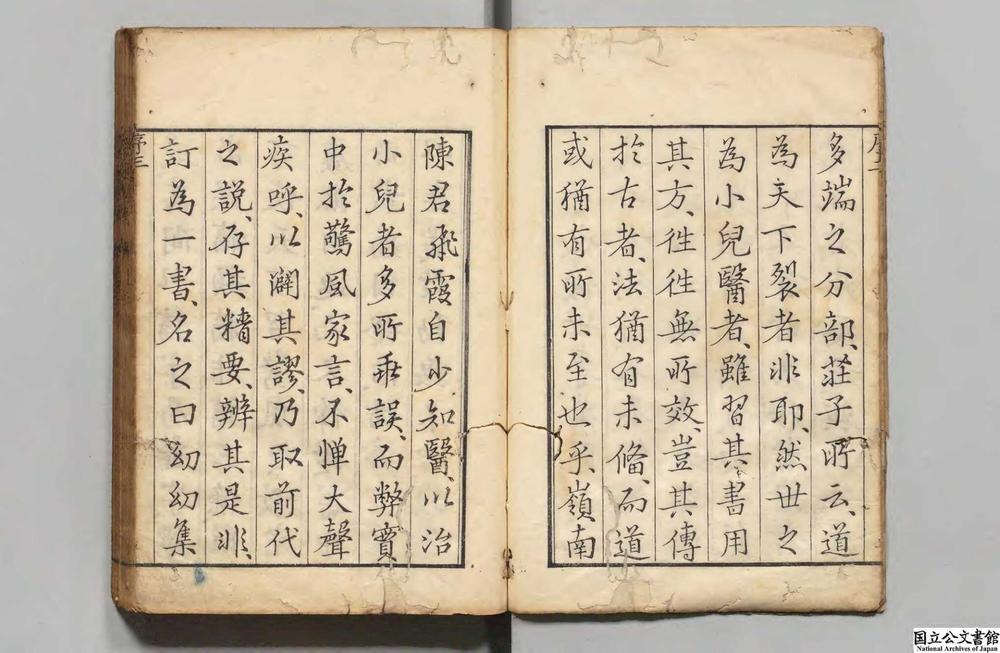 序二
多端之分部、莊子所云、道
為天下裂者非耶、然世之
為小兒醫者、雖習其書用
其方、徃徃無所效、豈其傳
於古者、法猶有未備、而道
或猶有所未至也乎、嶺南
陳君飛霞自少知醫、以治
小兒者多所乖誤、而弊實
中於驚風家言、不憚大聲
疾呼、以闢其謬、乃取前代
之說、存其精要、辨其是非、
訂為一書、名之曰幼幼集
序三
国立公文書館
National Archives of Japan